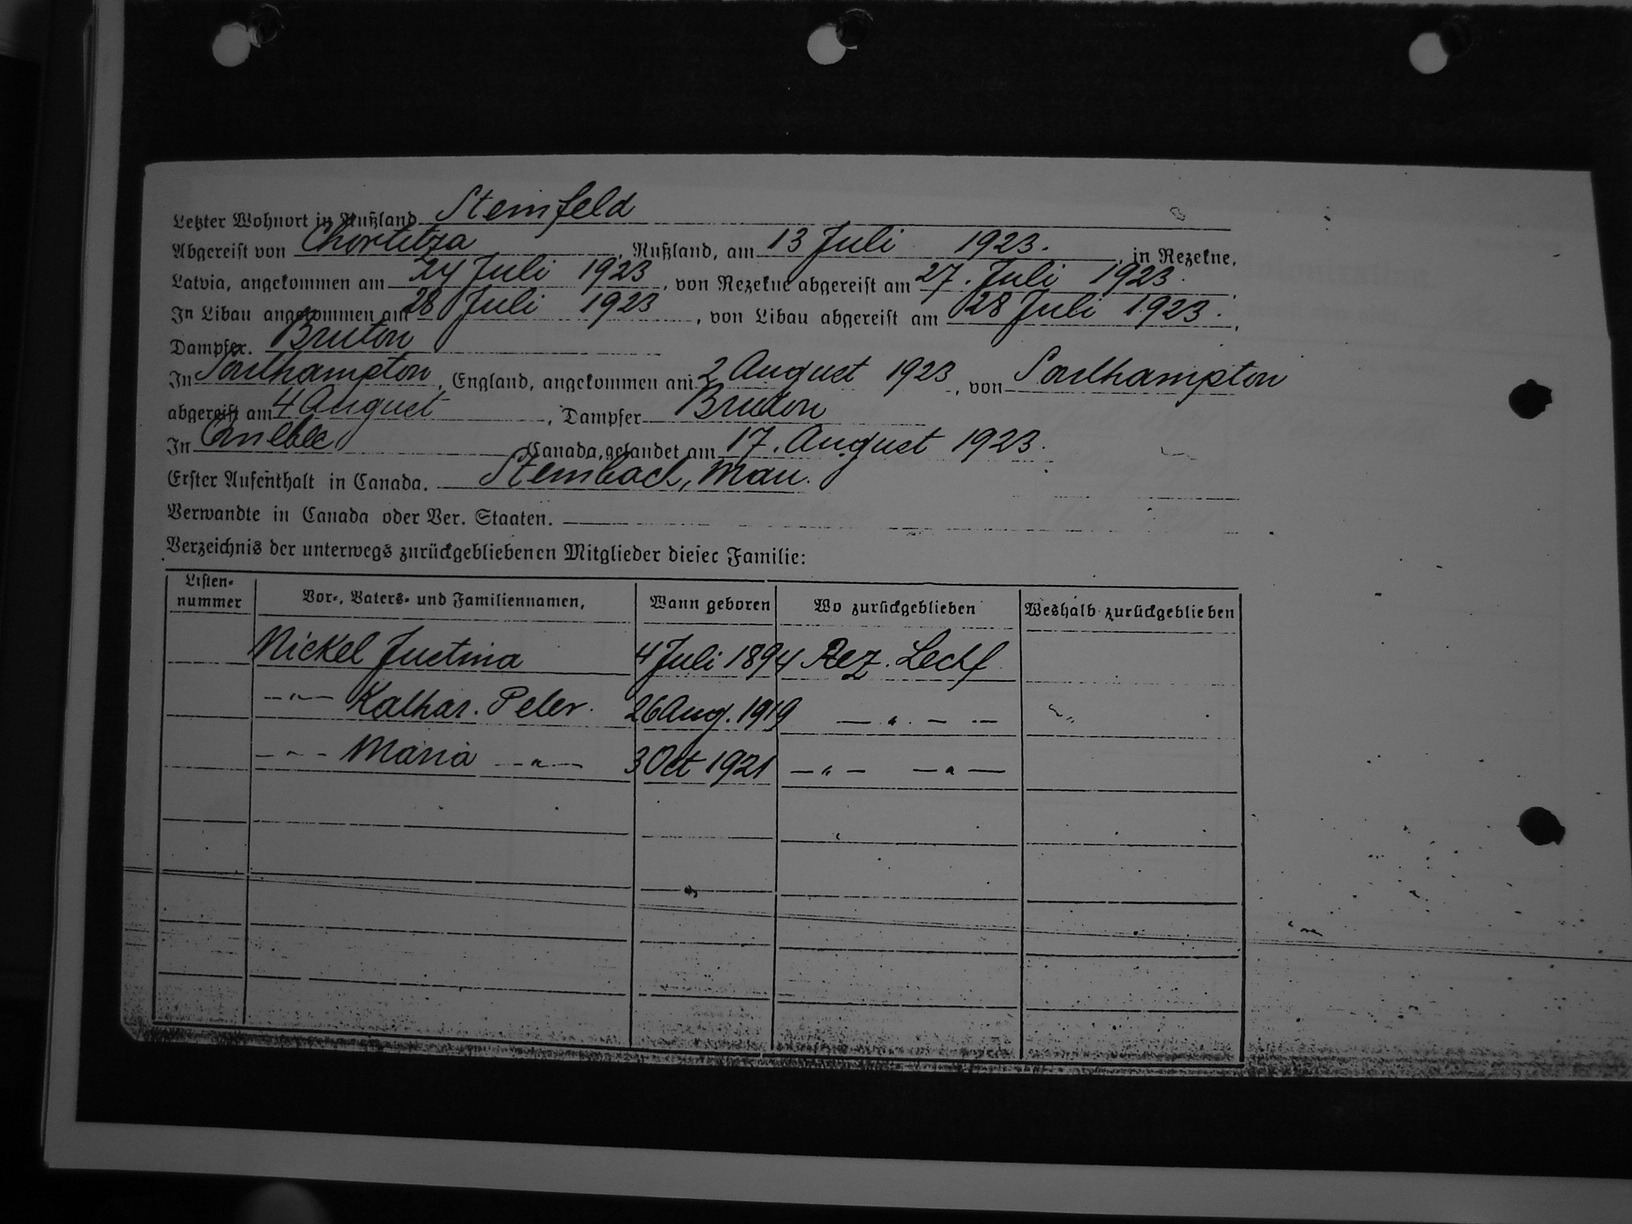 Letzter Wohnort in Rußland Steinfeld
Abgereist von Chortitza, Rußland, am 13 Juli 1923., in Rezekne,
Latvia, angekommen am 24 Juli 1923, von Rezekne abgereist am 27. Juli 1923.
In Libau angekommen am 28 Juli 1923, von Libau abgereist am 28 Juli 1923.
Dampfer. Bruton
In Southampton, England, angekommen am 2 August 1923, von Southampton
abgereist am 4 August, Dampfer Bruton
In Quebec Canada, gelandet am 17. August 1923.
Erster Aufenthalt in Canada. Steinbach, Man.
Verwandte in Canada oder Ver. Staaten.
Verzeichnis der unterwegs zurückgebliebenen Mitglieder dieser Familie:
Listen-nummer Vor-, Vaters- und Familiennamen, Wann geboren Wo zurückgeblieben Weshalb zurückgeblieben
Nickel Justina 4 Juli 1894 Rez. Lechf
—"— Kathar. Peter. 26 Aug. 1919 —"— —
—"— Maria —"— 3 Oct 1921 —"— —"—